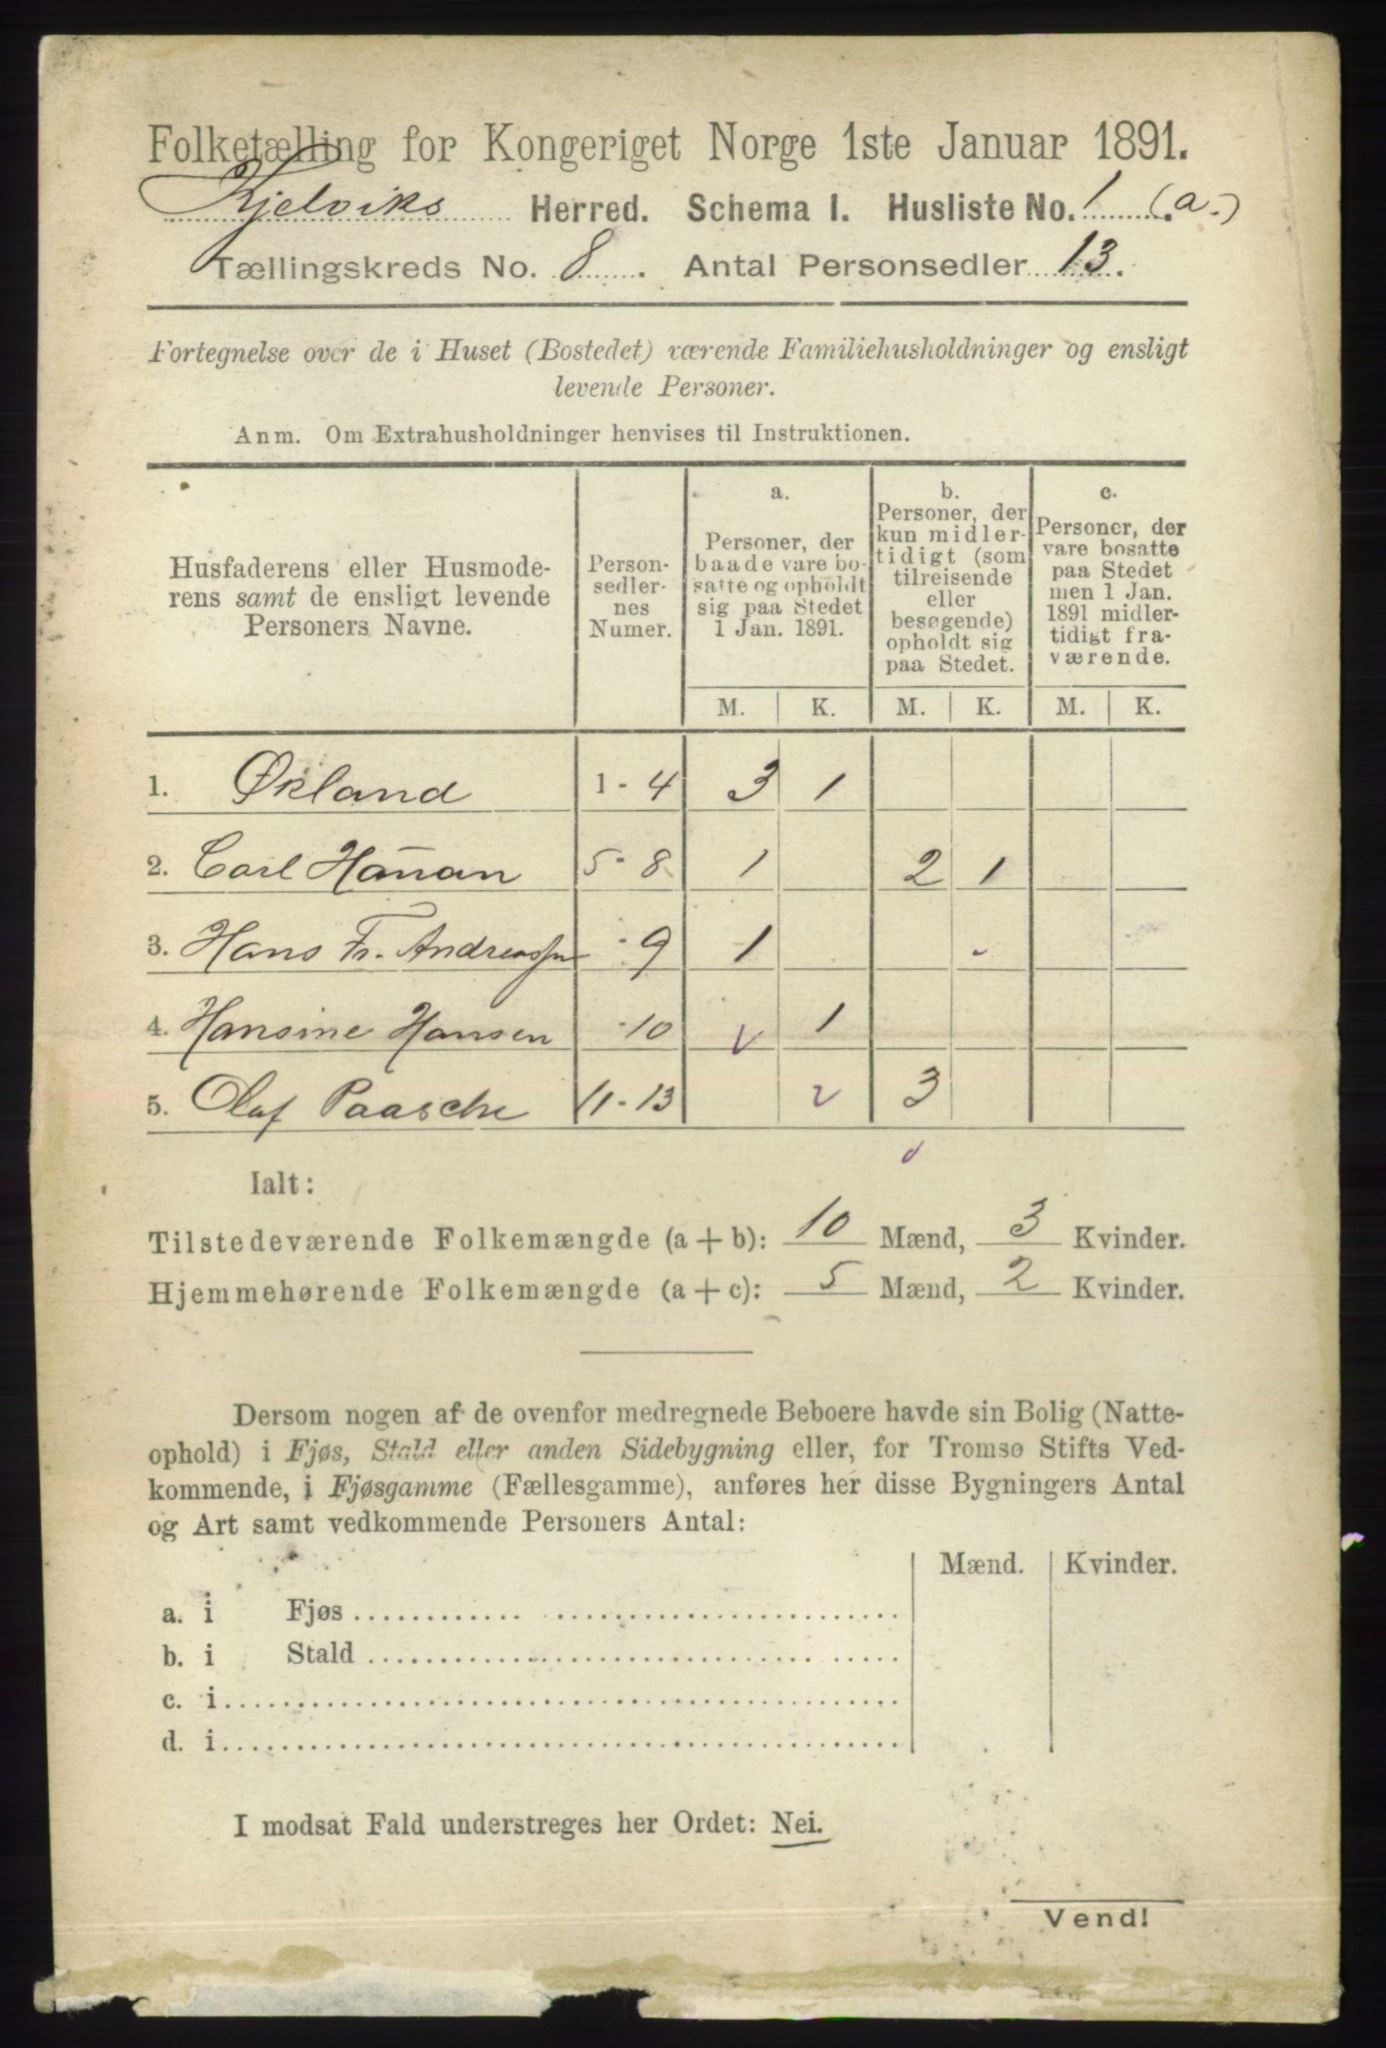 Folketælling for Kongeriget Norge 1ste Januar 1891.
Kjelviks Herred. Schema I. Husliste No. 1 (a.)
Tællingskreds No. 8. Antal Personsedler 13.
Fortegnelse over de i Huset (Bostedet) værende Familiehusholdninger og ensligt
levende Personer.
Anm. Om Extrahusholdninger henvises til Instruktionen.
Husfaderens eller Husmode-
rens samt de ensligt levende
Personers Navne.
Person-
sedler-
nes
Numer.
a.
Personer, der
baade vare bo-
satte og opholdt
sig paa Stedet
1 Jan. 1891.
b.
Personer, der
kun midler-
tidigt (som
tilreisende
eller
besøgende)
opholdt sig
paa Stedet.
c.
Personer, der
vare bosatte
paa Stedet
men 1 Jan.
1891 midler-
tidigt fra-
værende.
M. K. M. K. M. K.
1. Økland 1 - 4 3 1
2. Carl Hanan 5 - 8 1 2 1
3. Hans Fr. Andreassen - 9 1
4. Hansine Hansen - 10 1
5. Olaf Paasche 11 - 13 3
Ialt:
Tilstedeværende Folkemængde (a + b): 10 Mænd, 3 Kvinder.
Hjemmehørende Folkemængde (a + c): 5 Mænd, 2 Kvinder.
Dersom nogen af de ovenfor medregnede Beboere havde sin Bolig (Natte-
ophold) i Fjøs, Stald eller anden Sidebygning eller, for Tromsø Stifts Ved-
kommende, i Fjøsgamme (Fællesgamme), anføres her disse Bygningers Antal
og Art samt vedkommende Personers Antal:
Mænd. Kvinder.
a. i Fjøs
b. i Stald
c. i
d. i
I modsat Fald understreges her Ordet: Nei.
Vend!